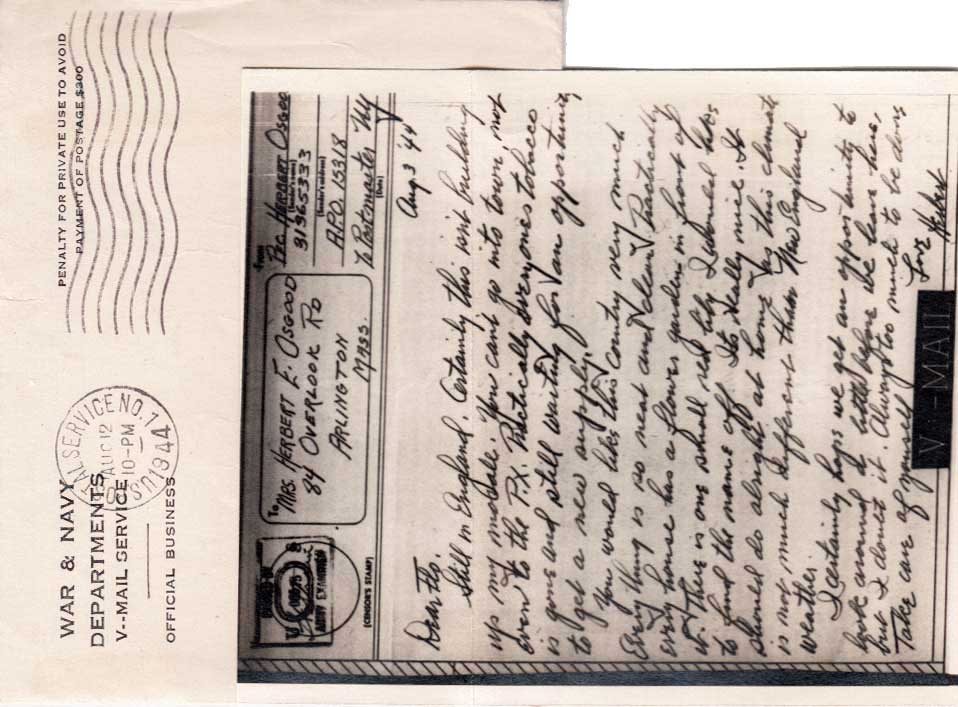 WAR & NAVY
DEPARTMENTS
V--MAIL SERVICE
OFFICIAL BUSINESS
U.S. POSTAL SERVICE NO. 1
AUG 12
10-PM
1944
PENALTY FOR PRIVATE USE TO AVOID
PAYMENT OF POSTAGE $300
ARMY EXAMINER
(CENSOR'S STAMP)
To
MRS. HERBERT E. OSGOOD
84 OVERLOOK RD
ARLINGTON
MASS.
From
Pfc. HERBERT OSGOOD
(Sender's name)
31365333
(Sender's address)
A.P.O. 15318
℅ Postmaster NY
(Date)
Aug 3 '44
Dear Flo.
Still in England. Certainly this isn't building
up my morale. You can't go into town, not
even to the P.X. Practically everyones tobacco
is gone and still waiting for an opportunity
to get a new supply.
You would like this country very much
Every thing is so neat and clean & Practically
every house has a flower garden in front of
it. There is one small red lily I wanted
to find the name of. Its really nice. It
should do alright at home as this climate
is not much different than New England
weather.
I certainly hope we get an opportunity to
look around a little before we leave here,
but I doubt it. Always too much to be done
Take care of yourself
Love Herbert
V--MAIL